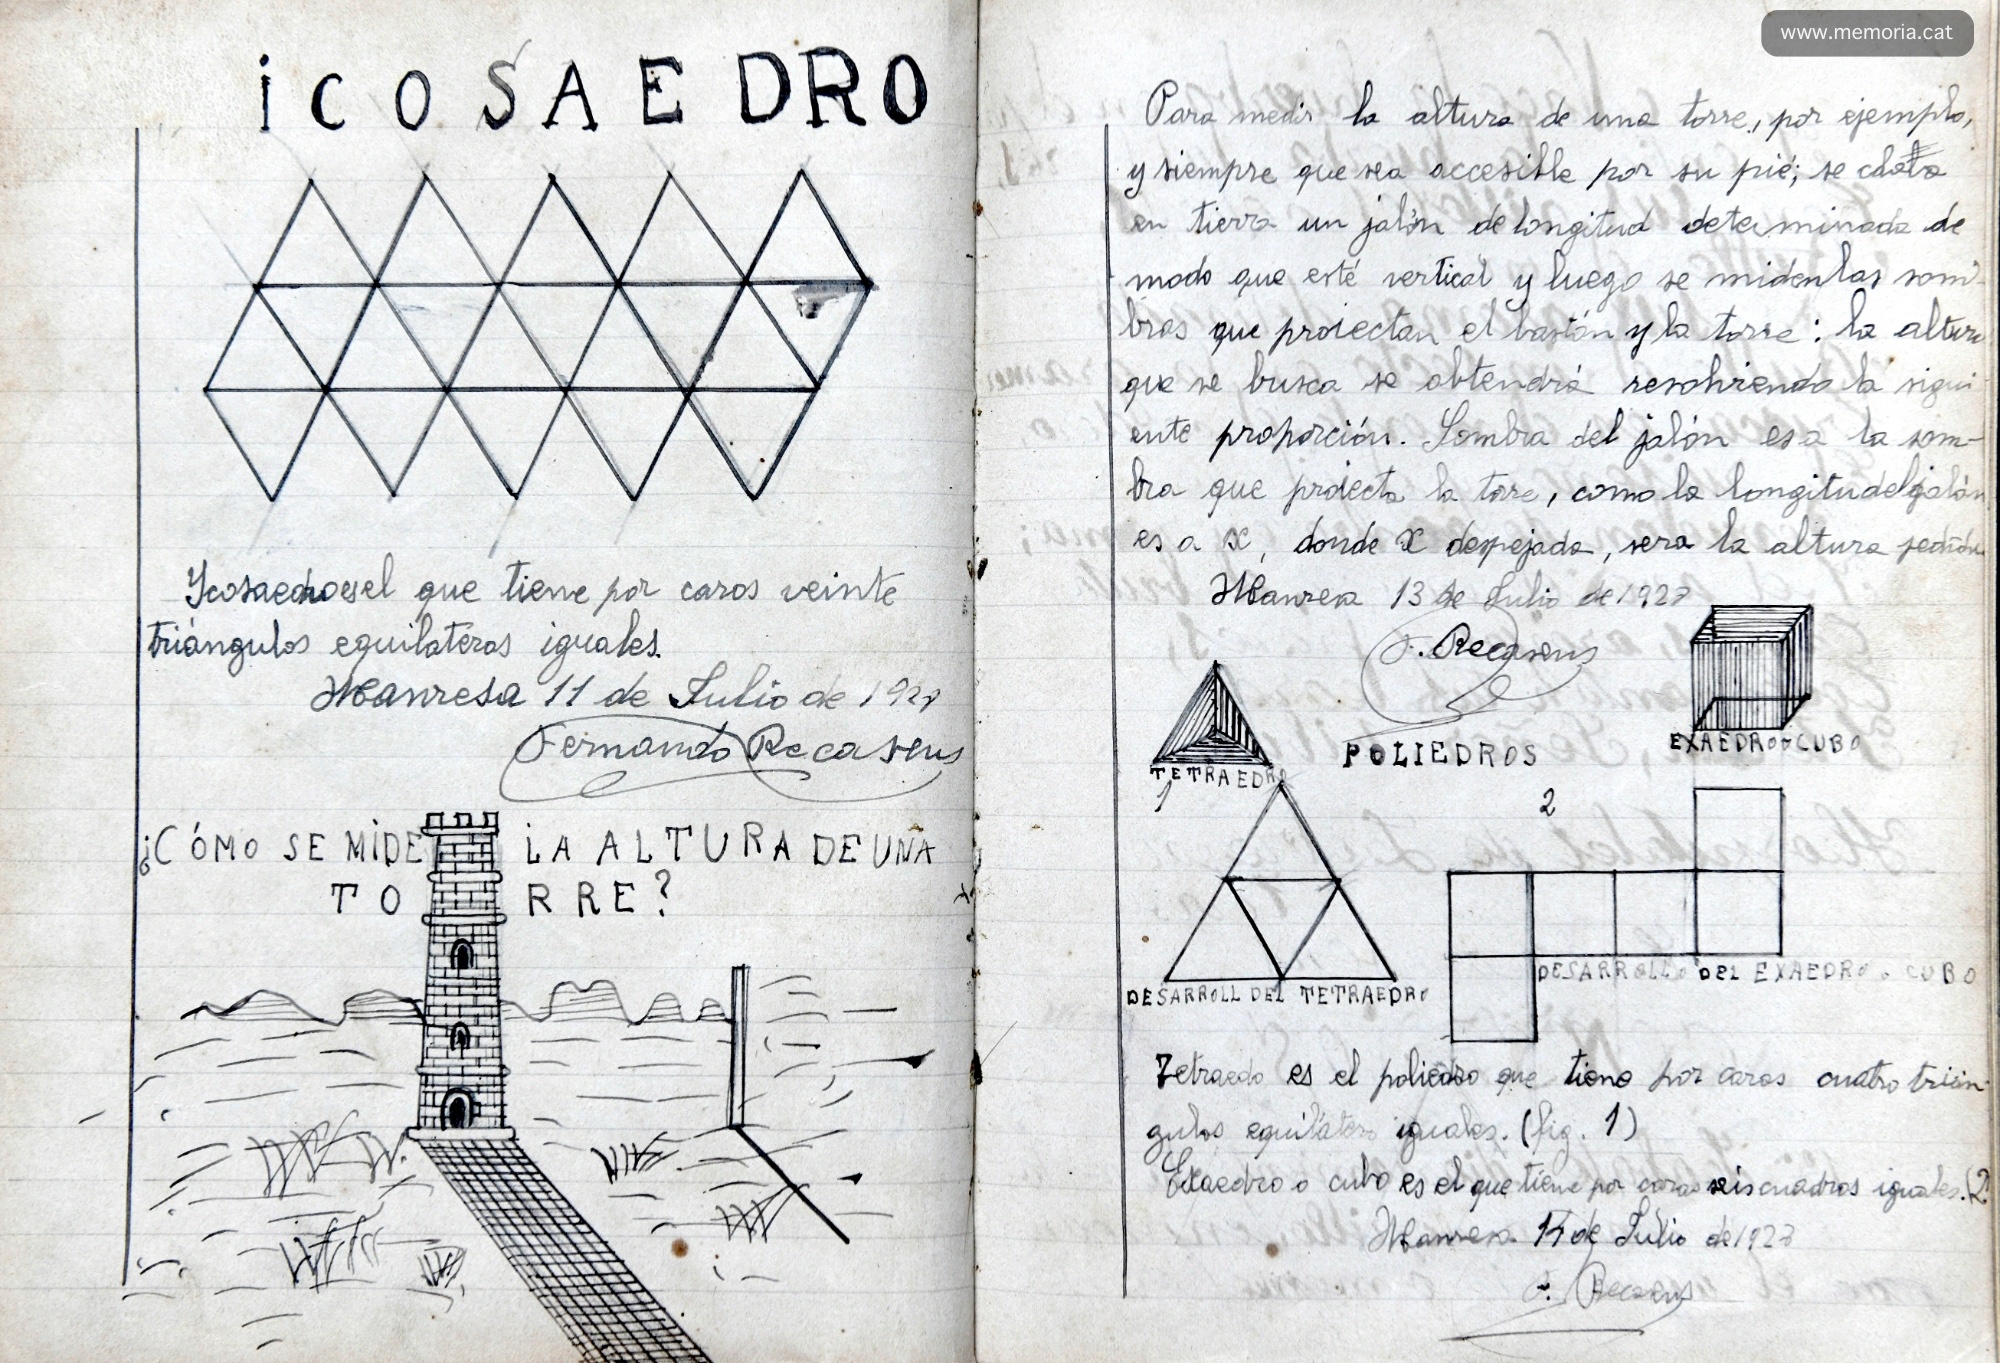 iCOSAEDRO
Ycosaedro es el que tiene por caras veinte
triángulos equilateros iguales.
Manresa 11 de Julio de 1927
Fernando Recasens
¿CÓMO SE MIDE LA ALTURA DE UNA
TORRE?
www.memoria.cat
Para medir la altura de una torre, por ejemplo,
y siempre que sea accesible por su pié; se clava
en tierra un jalón de longitud determinada de
modo que esté vertical y luego se miden las som-
bras que proiectan el bastón y la torre: la altura
que se busca se obtendrá resolviendo la sigui-
ente proporción. Sombra del jalón es a la som-
bra que proiecta la torre, como la longitud del jalón
es a x, donde x despejada, sera la altura pedida.
Manresa 13 de Julio de 1927
F. Recasens
TETRAEDRO
POLIEDROS
EXAEDRO o CUBO
1
2
DESARROLL DEL TETRAEDRO
DESARROLLO DEL EXAEDRO o CUBO
Tetraedo es el poliedro que tiene por caras cuatro trián-
gulos equilátero iguales. (fig. 1)
Exaedro o cubo es el que tiene por caras seis cuadros iguales. (2
Manresa 14 de Julio de 1927
F. Recasens